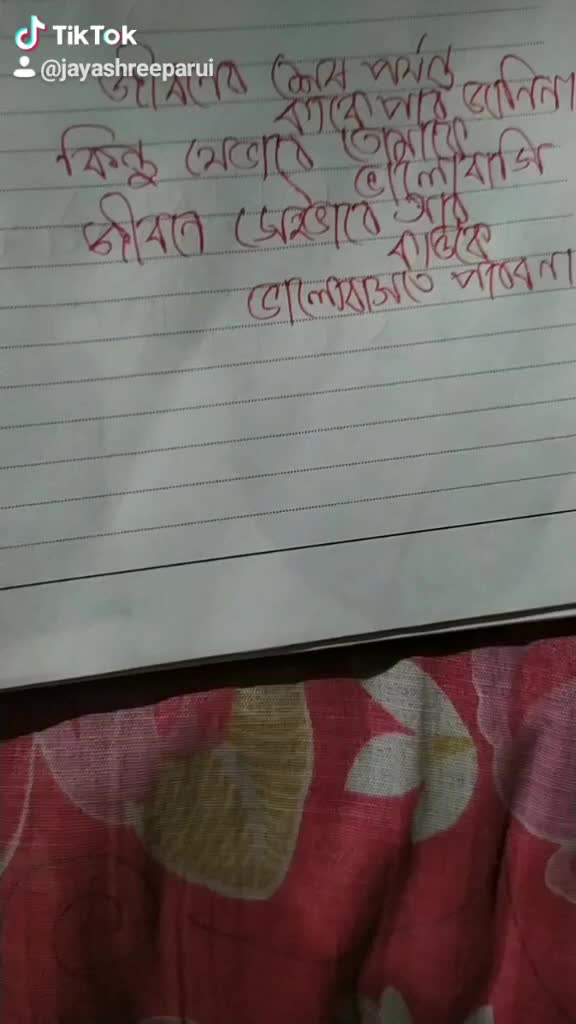 TikTok
@jayashreeparui
জীবনের শেষ পর্যন্ত
কাকে পাব জানিনা
কিন্তু যেভাবে তোমাকে
ভালোবাসি
জীবনে সেইভাবে আর
কাউকে
ভালোবাসতে পারবনা